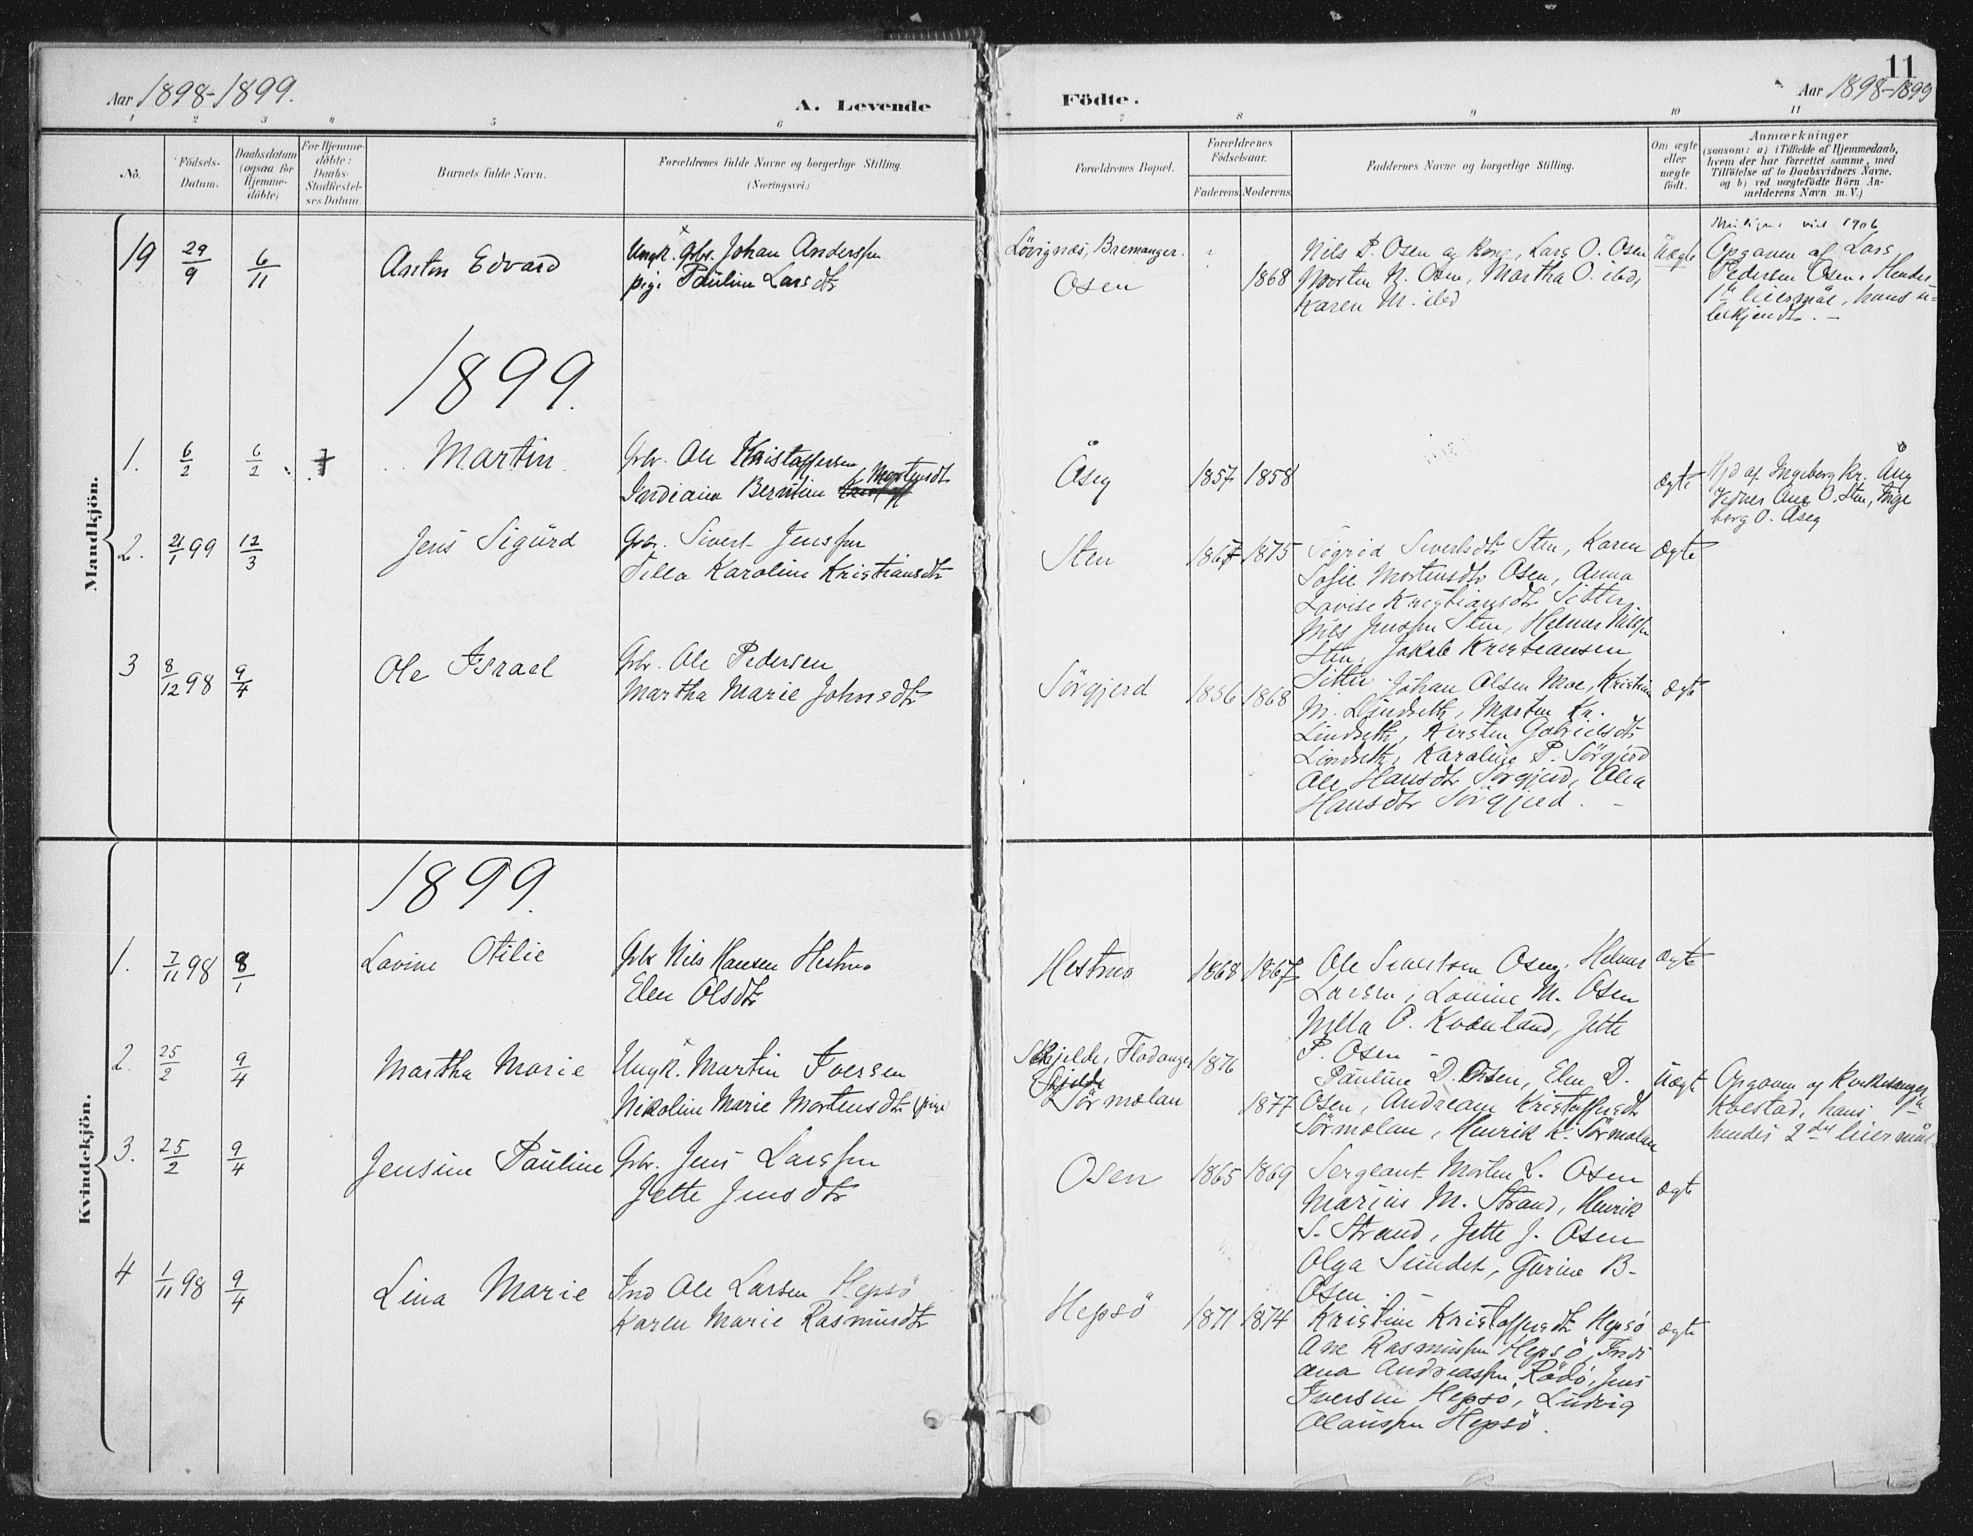 Aar 1898-1899.
A. Levende
Födte.
11
Aar 1898-1899
1 2 3 4 5 6 7 8 9 10 11
No.
Födsels-
Datum.
Daabsdatum
(ogsaa for
Hjemme-
döbte)
For Hjemme-
döbte:
Daabs-
Stadfæstel-
ses Datum.
Barnets fulde Navn.
Forældrenes fulde Navne og borgerlige Stilling.
(Næringsvei.)
Forældrenes Bopæl.
Forældrenes
Födselsaar.
Faderens Moderens
Faddernes Navne og borgerlige Stilling.
Om ægte
eller
uægte
födt.
Anmærkninger
(saasom: a) i Tilfælde af Hjemmedaab,
hvem der har forrettet samme, med
Tilföielse af to Daabsvidners Navne,
og b) ved uægtefödte Börn An-
melderens Navn m. V.)
Mandkjön.
19 29/9 6/11 Anton Edvard
Ungk. Gbr. Johan Anderssen
pige Pauline Larsdtr
Lövignæs, Bremanger.
Osen
1868
Nils P. Osen og Kone, Lars O. Osen
Morten N. Osen, Martha O. ibd,
Karen M. ibd
Uægte
1906
Opgaven af Lars
Pedersen Osen. Hendes
1ste leiermål, hans u-
bekjendt. -
1899.
1. 6/2 6/2 Martin
Gbr. Ole Kristoffersen
Indiana Berntine Mortensdt
Åseg
1857 1858
ægte
Hjd af Ingeborg Kr. Åseg
Vidner Ane O. Sten, Inge
borg O. Aseg
2. 21/1 99 12/3 Jens Sigurd
Gbr. Sivert Jenssen
Tilla Karoline Kristiansdtr
Sten
1867 1875
Sigrid Sivertsdtr Sten, Karen
Sofie Mortensdtr Osen, Anna
Lovise Kristiansdtr Sitter,
Nils Jenssen Sten, Helmer Nilssen
Sten, Jakob Kristiansen
Sitter
ægte
3 8/12 98 9/4 Ole Israel
Gbr. Ole Pedersen
Martha Marie Johnsdtr
Sörgjerd
1856 1868
Johan Olsen Moe, Kristine
M. Lindseth, Morten Kr.
Lindseth, Kirsten Gabrielsdtr
Lindseth, Karoline P. Sörgjerd
Ole Hansdtr Sörgjerd, Olea
Hansdtr Sörgjerd. -
ægte
Kvindekjön.
1899.
1. 7/11 98 8/1 Lovine Otilie
Gbr Nils Hansen Hestnes
Elen Olsdtr
Hestnes
1868 1867
Ole Sivertsen Oseng, Helmer
Larsen, Lovine M. Osen
Nilla P. Kvænland, Jette
P. Osen -
ægte
2. 25/2 9/4 Martha Marie
Ungk. Martin Iversen
Nikoline Marie Mortensdtr (pige)
Skjelde, Fladanger
Skjelde
Sörmolan
1876
1877
Pauline D. Osen, Elen D.
Osen, Andreane Kristoffersdtr
Sörmolan, Henrik K. Sörmolan
Uægte
Opgaven af Kirkesanger
Koestad, hans 1ste
hendes 2det leiermål.
3. 25/2 9/4 Jensine Pauline
Gbr. Jens Larssen
Jette Jensdtr
Osen
1865 1869
Sergeant Morten L. Osen
Marius M. Strand, Henrik
S. Strand, Jette J. Osen
Olga Sundet, Gurine B-
Osen. -
ægte
4 1/11 98 9/4 Lina Marie
Ind Ole Larsen Hepsö
Karen Marie Rasmusdtr
Hepsö
1871 1874
Kristine Kristoffersdtr Hepsö
Ane Rasmussen Hepsö, Indi
ana Andreassen Rödö, Jens
Iversen Hepsö, Ludvig
Olaussen Hepsö.
ægte